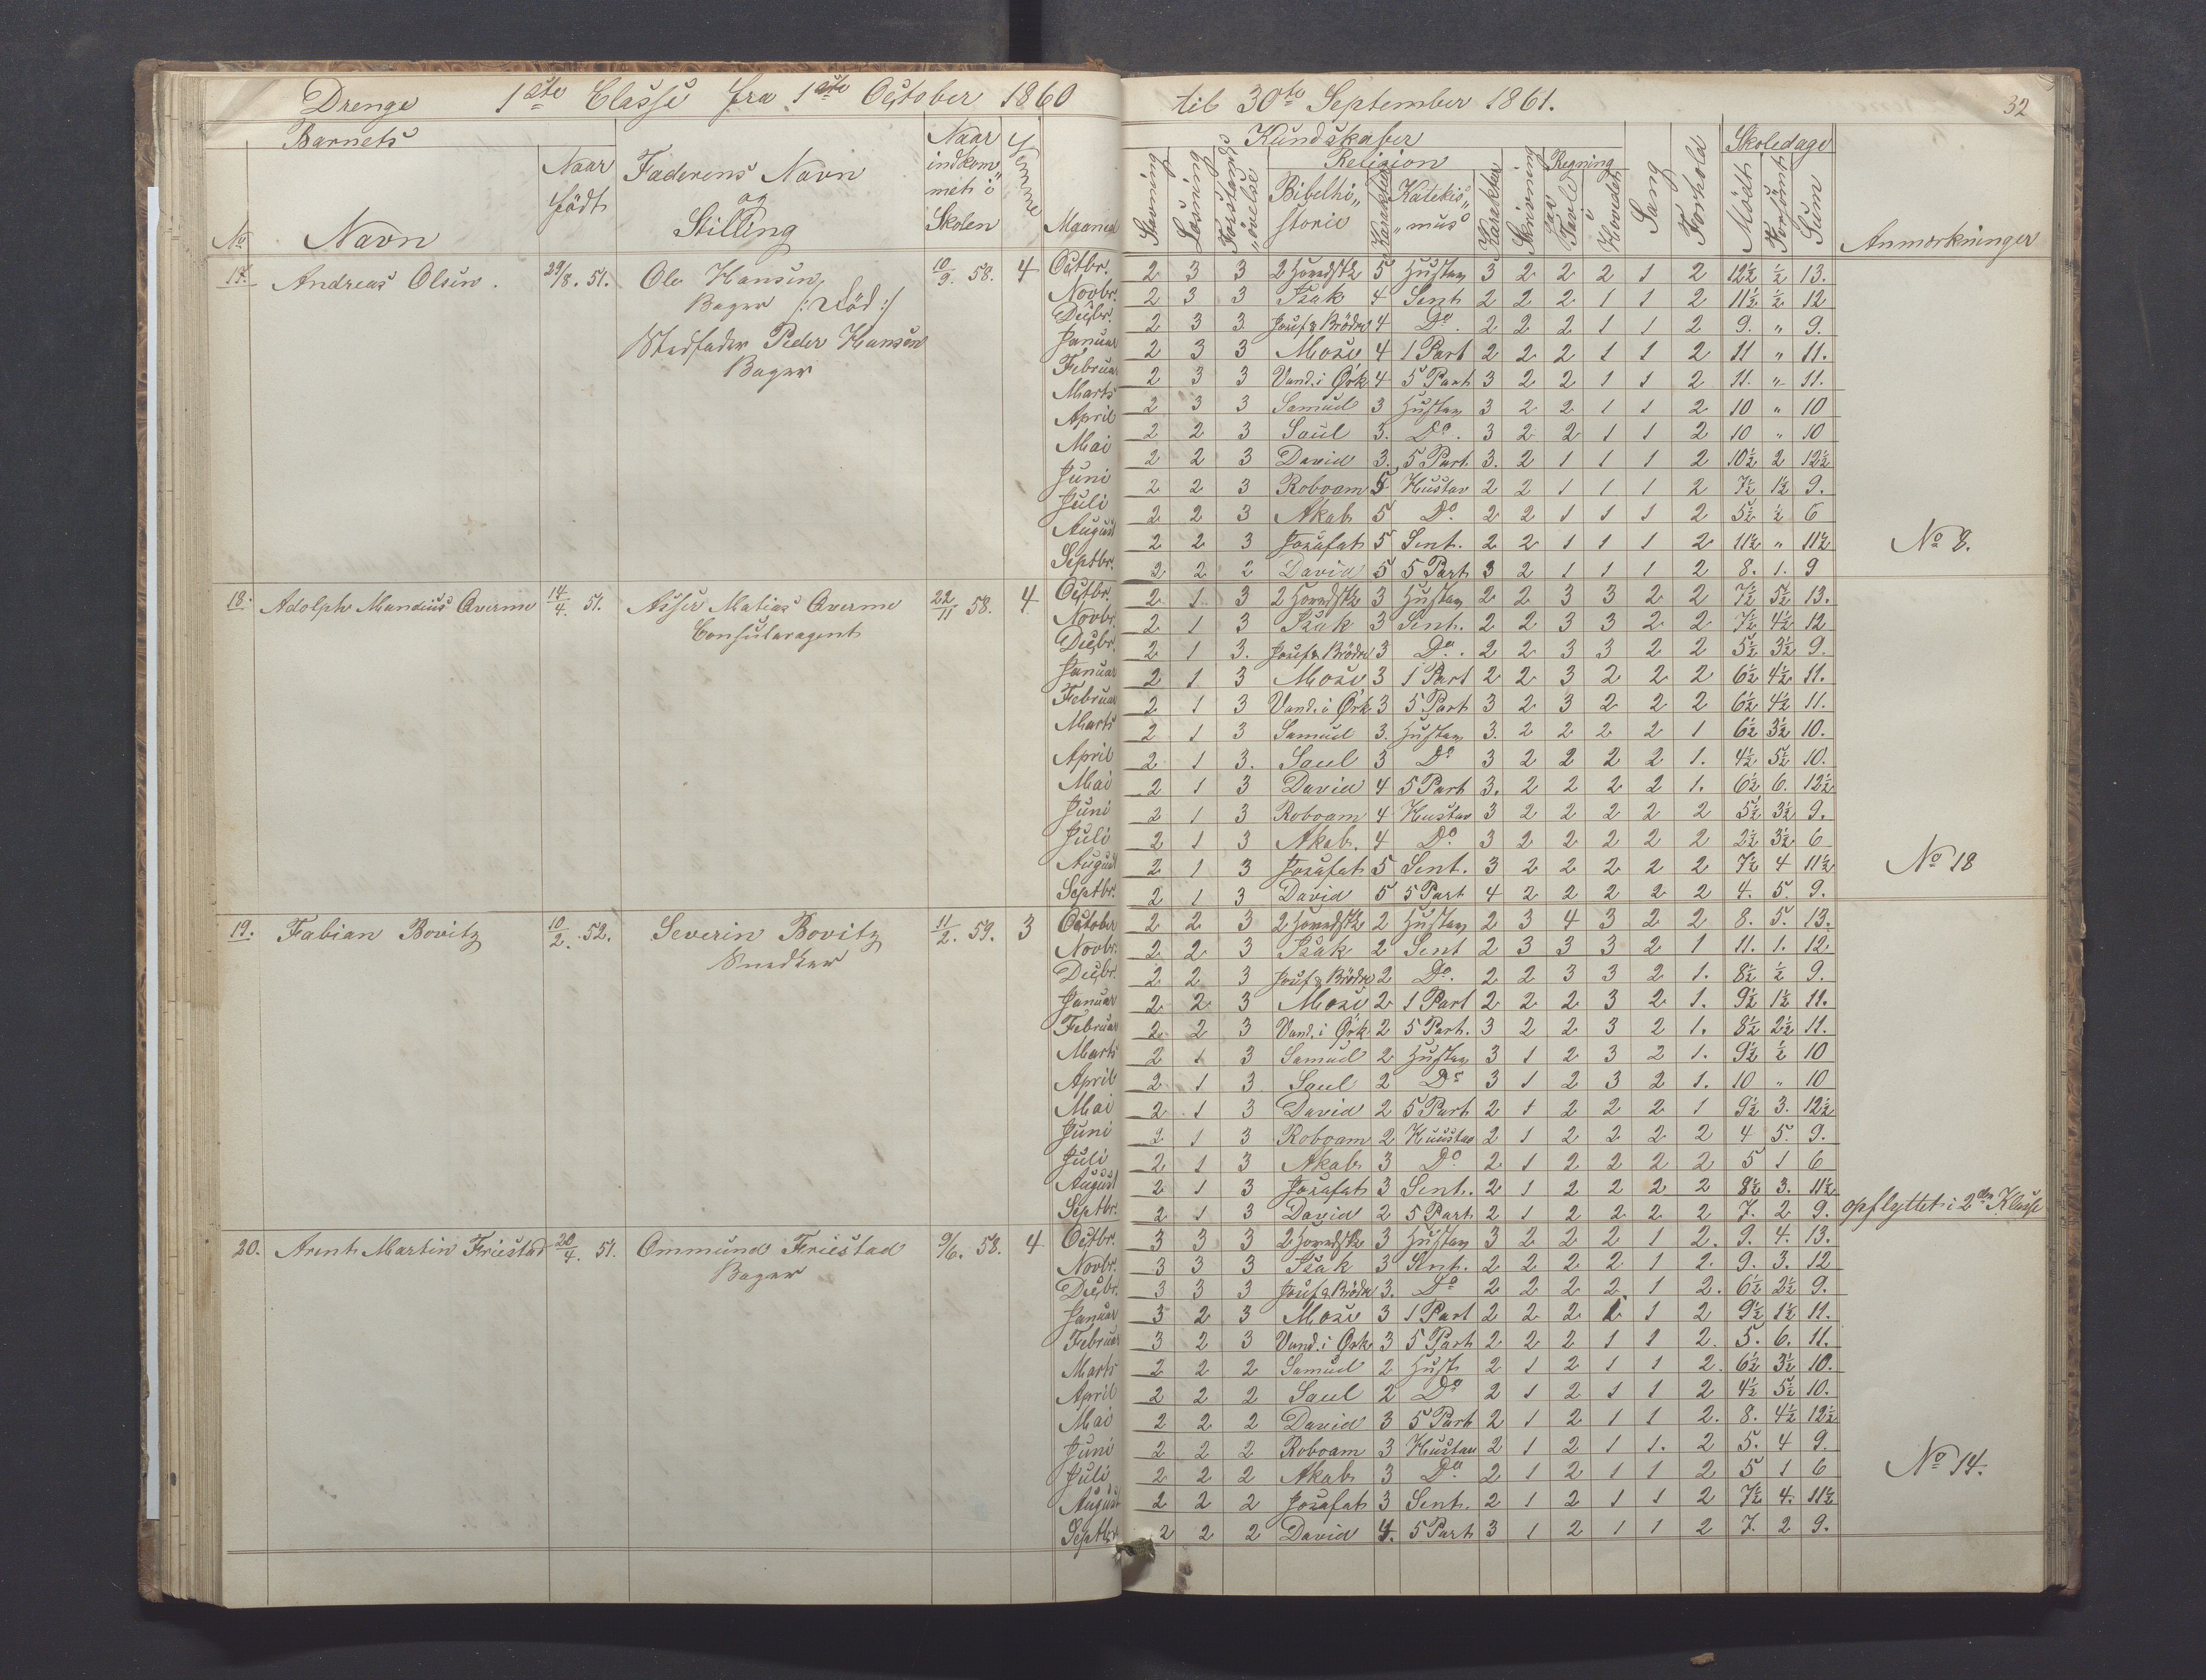 Drenge 1ste Classe fra 1ste October 1860 til 30te September 1861. 32
Barnets Naar Kundskaber Skoledage
No Navn Naar födt Faderens Navn og Stilling Naar indkommet i Skolen Evne Maaned Stavning Læsning Forstands„övelse Religion Bibelhi„storie Karakter Katekis„mus Karakter Skrivning Regning Paa Tavle I Hovedet Sang Forhold Mödt Forsömt Sum Anmærkninger
17. Andreas Olsen. 29/8. 51. Ole Hansen, 10/9. 58. 4 Octbr. 2 3 3 2 Hovedstk 5 Hustav 3 2 2 2 1 2 12½ ½ 13.
Bager /: Död :/ Novbr. 2 3 3 Isak 4 Sent 2 2 2 1 1 2 11½ ½ 12
Decbr. 2 3 3 Josef & Brödre 4 Do. 2 2 2 1 1 2 9. „ 9.
Stedfader Peder Hansen Januar 2 3 3 Mose 4 1 Part 2 2 2 1 1 2 11 „ 11.
Bager Februar 2 3 3 Vand. i Ørk 4 5 Part 3 2 2 1 1 2 11. „ 11.
Marts 2 3 3 Samuel 3 Hustav 3 2 2 1 1 2 10 „ 10
April 2 2 3 Saul 3. Do. 3 2 2 1 1 2 10 „ 10
Mai 2 2 3 David 3. 5 Part 3. 2 1 1 1 2 10½ 2 12½
Juni 2 2 3 Roboam 5 Hustav 2 2 1 1 1 2 7½ 1½ 9.
Juli 2 2 3 Akab 5 Do. 2 2 1 1 1 2 5½ ½ 6
August 2 2 3 Josafat 5 Sent. 2 2 1 1 1 2 11½ „ 11½ No 8.
Septbr. 2 2 2 David 5 5 Part 3 2 1 1 1 2 8. 1. 9
18. Adolph Mandius Qverme 14/4. 51. Asser Matias Qverme 22/11 58. 4. Octbr. 2 1 3 2 Hovedstk 3 Hustav 2 2 3 3 2 2 7½ 5½ 13.
Consularagent Novbr. 2 1 3 Isak 3 Sent. 2 2 3 3 2 2 7½ 4½ 12
Decbr. 2 1 3. Josef & Brödre 3 Do. 2 2 3 3 2 2 5½ 3½ 9.
Januar 2 1 3 Mose 3 1 Part 2 2 3 2 2 2 6½ 4½ 11.
Februar 2 1 3 Vand. i Ørk 3 5 Part 3 2 3 2 2 2 6½ 4½ 11.
Marts 2 1 3 Samuel 3. Hustav 3. 2 2 2 2 1 6½ 3½ 10.
April 2 1 3. Saul 3 Do 3 2 2 2 2 1. 4½ 5½ 10.
Mai 2 1 3 David 4 5 Part 3. 2 2 2 2 1. 6½ 6. 12½
Juni 2 1 3 Roboam 4 Hustav 3 2 2 2 2 2 5½ 3½ 9.
Juli 2 1 3 Akab. 4 Do. 3 2 2 2 2 2 2½ 3½ 6
August 2 1 3 Josafat 5 Sent. 3 2 2 2 2 2 7½ 4 11½ No 18
Septbr. 2 1 3 David 5 5 Part 4 2 2 2 2 2 4. 5. 9.
19. Fabian Bovitz 10/2. 52. Severin Bovitz 11/2. 59. 3 October 2 2 3 2 Hovedstk 2 Hustav 2 3 4 3 2 2 8. 5. 13.
Snedker Novbr. 2 2 3 Isak 2 Sent 2 3 3 3 2 1 11. 1. 12
Decbr. 2 2 3 Josef & Brödre 2 Do. 2 2 3 3 2 1. 8½ ½ 9.
Januar 2 2 3 Mose 2 1 Part 2 2 2 3 2 1. 9½ 1½ 11.
Februar 2 2 3 Vand. i Ørk 2 5 Part. 3 2 2 3 2 1. 8½ 2½ 11.
Marts 2 1 3 Samuel 2 Hustav 3 1 2 3 2 1. 9½ ½ 10
April 2 1 3 Saul 2 Do 3 1 2 3 2 1. 10 „ 10
Mai 2 1 3 David 2 5 Part 2 1 2 2 2 1 9½ 3. 12½
Juni 2 1 3 Roboam 2 Huustav 2 1 2 2 2 2 4 5. 9.
Juli 2 1 3 Akab 3 Do. 2 1 2 2 2 2 5 1 6
August 2 1 3 Josafat 3 Sent. 2 1 2 2 2 2 8½ 3. 11½
Septbr. 2 1 3 David 2 5 Part 2 1 2 2 2 2 7. 2 9. opflyttet i 2den Klasse
20. Arent Martin Friestad 20/4. 51. Ommund Friestad 9/6. 58. 4 Octbr. 3 3 3 2 Hovedstk 3 Hustav 3 2 2 2 1 2. 9. 4. 13.
Bager Novbr. 3 3 3 Isak 3 Sent. 2 2 2 2 1 2. 9. 3. 12
Decbr. 3 3 3 Josef & Brödre 3. Do 2 2 2 2 1 2. 6½ 2½ 9.
Januar 3 2 3 Mose 3 1 Part 2 2 2 1 1 2 9½ 1½ 11.
Februar 3 2 3 Vand. i Ørk 3 5 Part 2 2 2 1 1 2. 5. 6. 11.
Marts 2 2 2 Samuel 2 Hust 2 1 2 1 1 2. 6½ 3½ 10.
April 2 2 2 Saul 2 Do 2 1 2 1 1 2 4½ 5½ 10.
Mai 2 2 2 David 3 5 Part 2 1 2 1 1 2. 8. 4½ 12½
Juni 2 2 2 Roboam 3 Hustav 2 1 2 1 1. 2 5. 4 9.
Juli 2 2 2 Akab 3 Do. 2 1 2 1 1 2 5 1 6 No 14.
August 2 2 2 Josafat 3 Sent. 2 1 2 1 1 2 7½ 4. 11½
Septbr 2 2 2 David 4. 5 Part 3 1 2 1 1 2 7. 2 9.